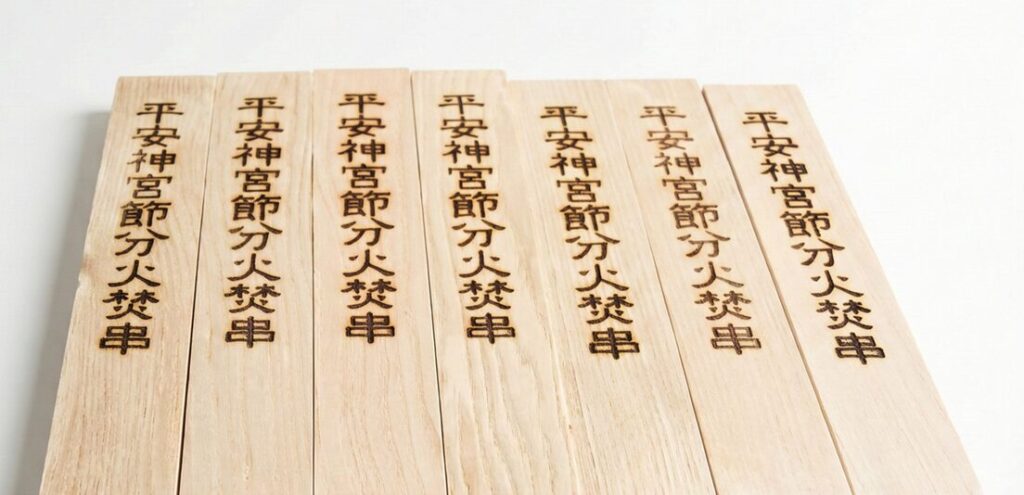 平安神宮節分火焚串
平安神宮節分火焚串
平安神宮節分火焚串
平安神宮節分火焚串
平安神宮節分火焚串
平安神宮節分火焚串
平安神宮節分火焚串